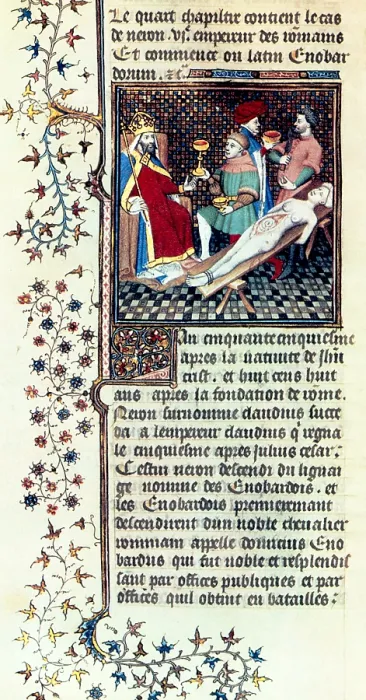 Le quart chapiltre contient le cas
de neron. vj͛. empereur des romains
Et commence ou latin Enobar
dorum. ⁊c͛.
An cinquantecinquiesme
apres la natiuite de jhũ
crist. et huit cens huit
ans apres la fondation de rome.
Neron surnomme claudius succe
da a lempereur claudius q̃ regna
le cinquiesme apres julius cesar.
Cestui neron descendi du lignai
ge nomme des Enobardois. et
les Enobardois premierement
descendirent dun noble cheualier
rommain appelle domicius Eno
bardus qui fut noble et resplendis
sant par offices publiques et par
offices quil obtint en batailles.